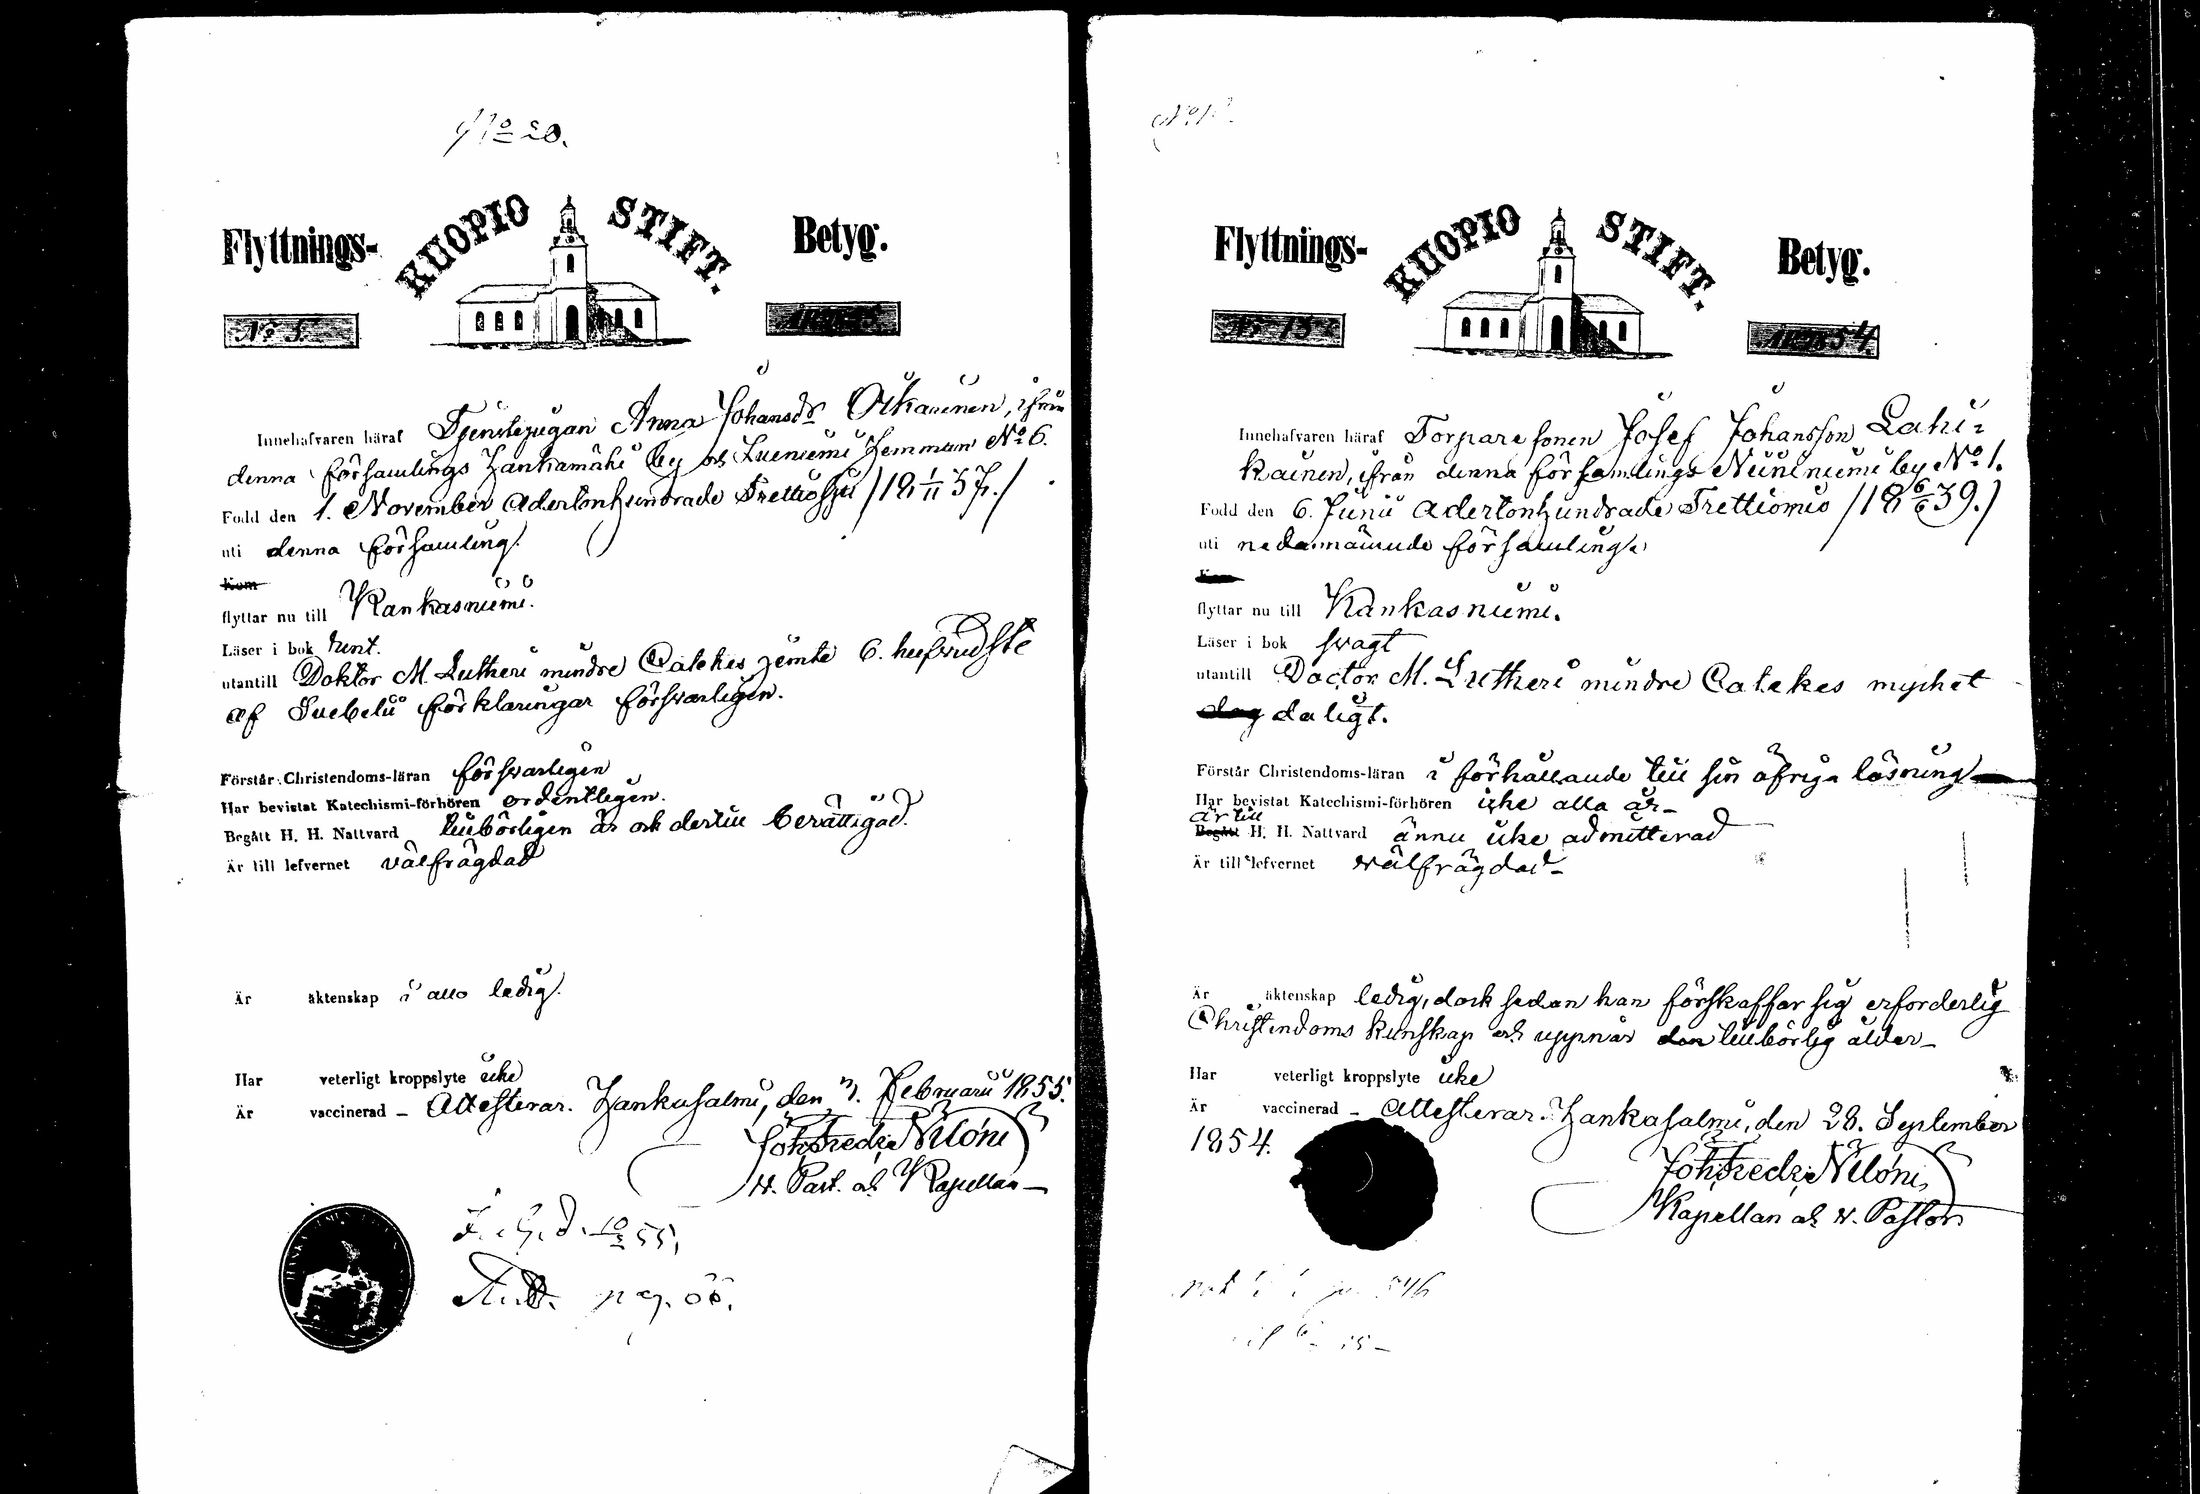 No 20.
Flyttnings-
KUOPIO STIFT.
Betyg.
No 5.
Innehafvaren häraf Tjenstepigan Anna Johansdr Oikarinen, ifrån
denna församlings Hankamäki by och Lueniemi hemman No 6.
Född den 1. November Adertonhundrade Trettiosju /18 1/11 37./
uti denna församling.
Kom
flyttar nu till Kankasniemi.
Läser i bok rent.
utantill Doktor M. Lutheri mindre Catekes jemte 6. hufvudstc
af Svebelii förklaringar försvarligen.
Förstår Christendoms-läran försvarligen
Har bevistat Katechismi-förhören ordentligen.
Begått H. H. Nattvard tillbörligen är och dertill berättigad.
Är till lefvernet välfrägdad
Är äktenskap i allo ledig.
Har veterligt kroppslyte icke
Är vaccinerad – Attesterar. Hankasalmi, den 7. Februarii 1855.
Joh. Fredr. Niloni
v. Past. och Kapellan –
pag.
No 1
Flyttnings-
KUOPIO STIFT.
Betyg.
No 15
År 1854.
Innehafvaren häraf Torparesonen Josef Johansson Lahi-
kainen, ifrån denna församlings Niininiemi by No 1.
Född den 6. Junii Adertonhundrade Trettionio /18 6/6 39./
uti nedannämnde församling.
Kom
flyttar nu till Kankasniemi.
Läser i bok svagt
utantill Doctor M. Lutheri mindre Catekes mycket
dåg daligt.
Förstår Christendoms-läran i förhållande till sin öfriga läsning
Har bevistat Katechismi-förhören icke alla år –
är till
Begått H. H. Nattvard ännu icke admitterad
Är till lefvernet välfrägdad –
Är äktenskap ledig, dock sedan han förskaffar sig erforderlig
Christendoms kunskap och uppnår den tillbörlig ålder –
Har veterligt kroppslyte icke
Är vaccinerad – Attesterar. Hankasalmi, den 28. September
1854.
Joh. Fredr. Niloni,
Kapellan och v. Pastor